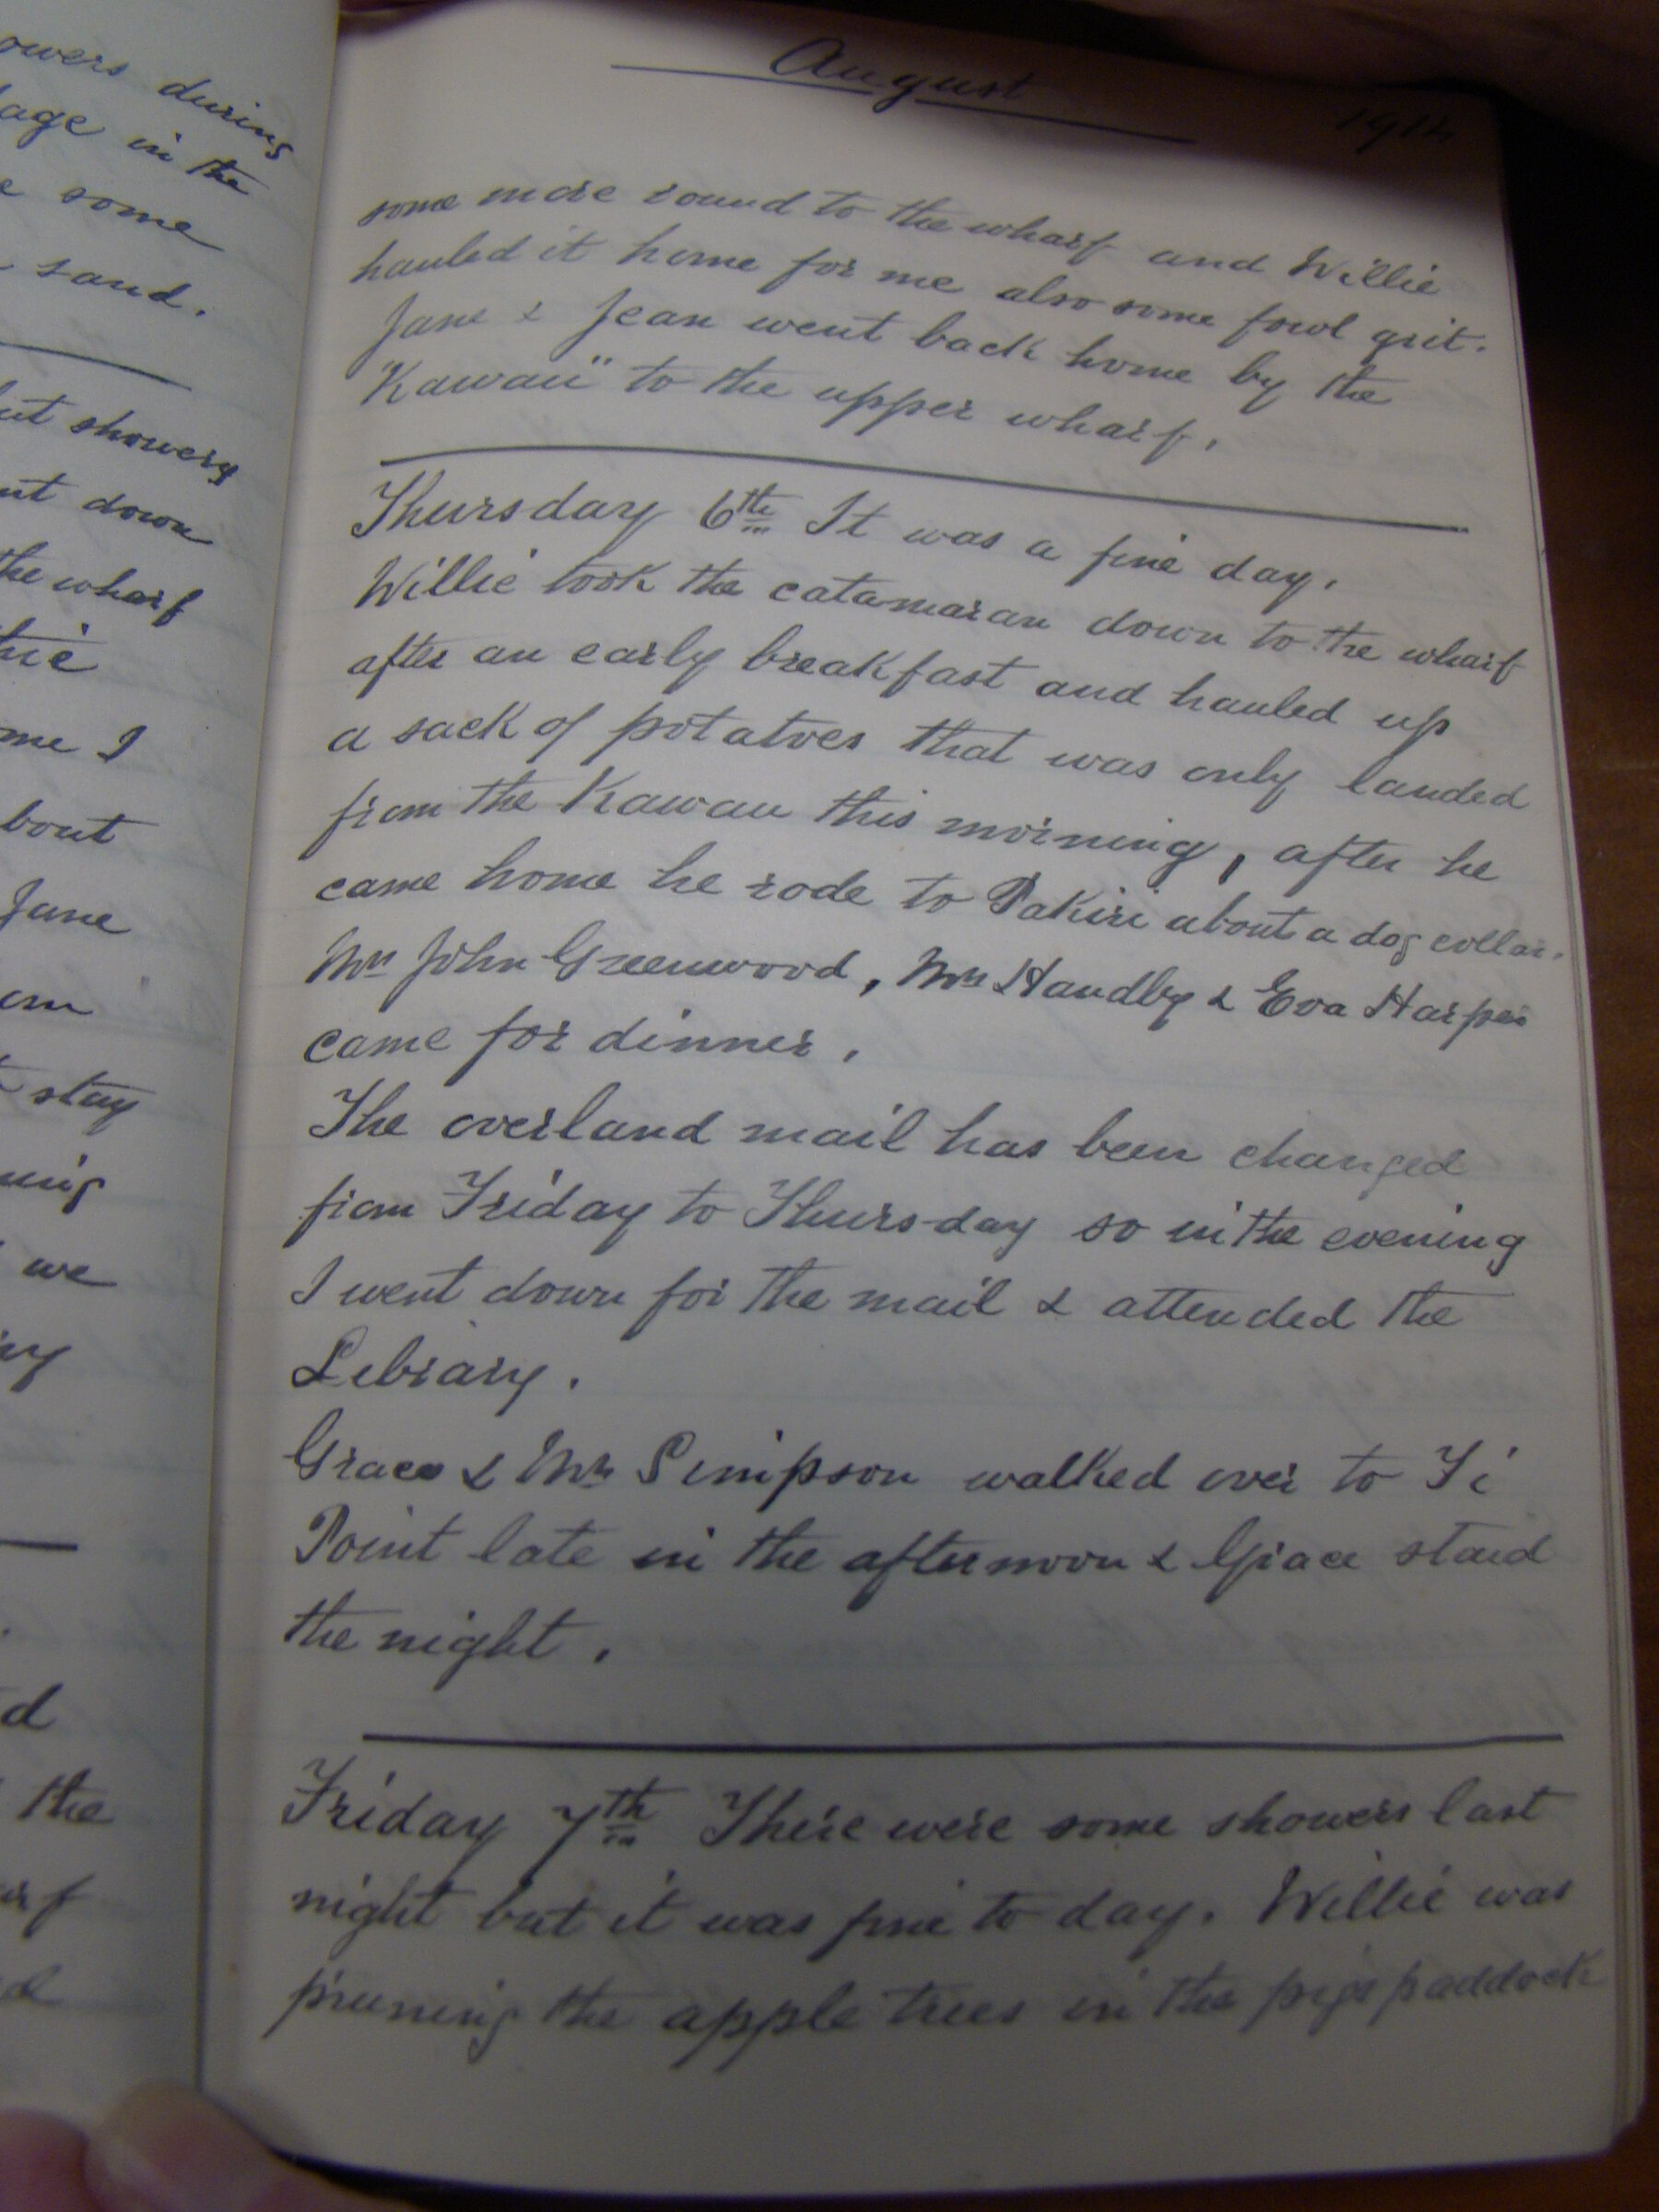 owers during
age in the
some
sand.
ut showery
nt down
the wharf
me I
bout
Jane
stay
we
d
the
August 1914
some more round to the wharf and Willie
hauled it home for me also some fowl grit.
Jane & Jean went back home by the
"Kawau" to the upper wharf.
Thursday 6th It was a fine day.
Willie took the catamaran down to the wharf
after an early breakfast and hauled up
a sack of potatoes that was only landed
from the Kawau this morning, after he
came home he rode to Pakiri about a dog collar.
Mrs John Greenwood, Mrs Handby & Eva Harper
came for dinner.
The overland mail has been changed
from Friday to Thursday so in the evening
I went down for the mail & attended the
Library.
Grace & Mrs Simpson walked over to Ti
Point late in the afternoon & Grace staid
the night.
Friday 7th There were some showers last
night but it was fine to day. Willie was
pruning the apple trees in the pigs paddock